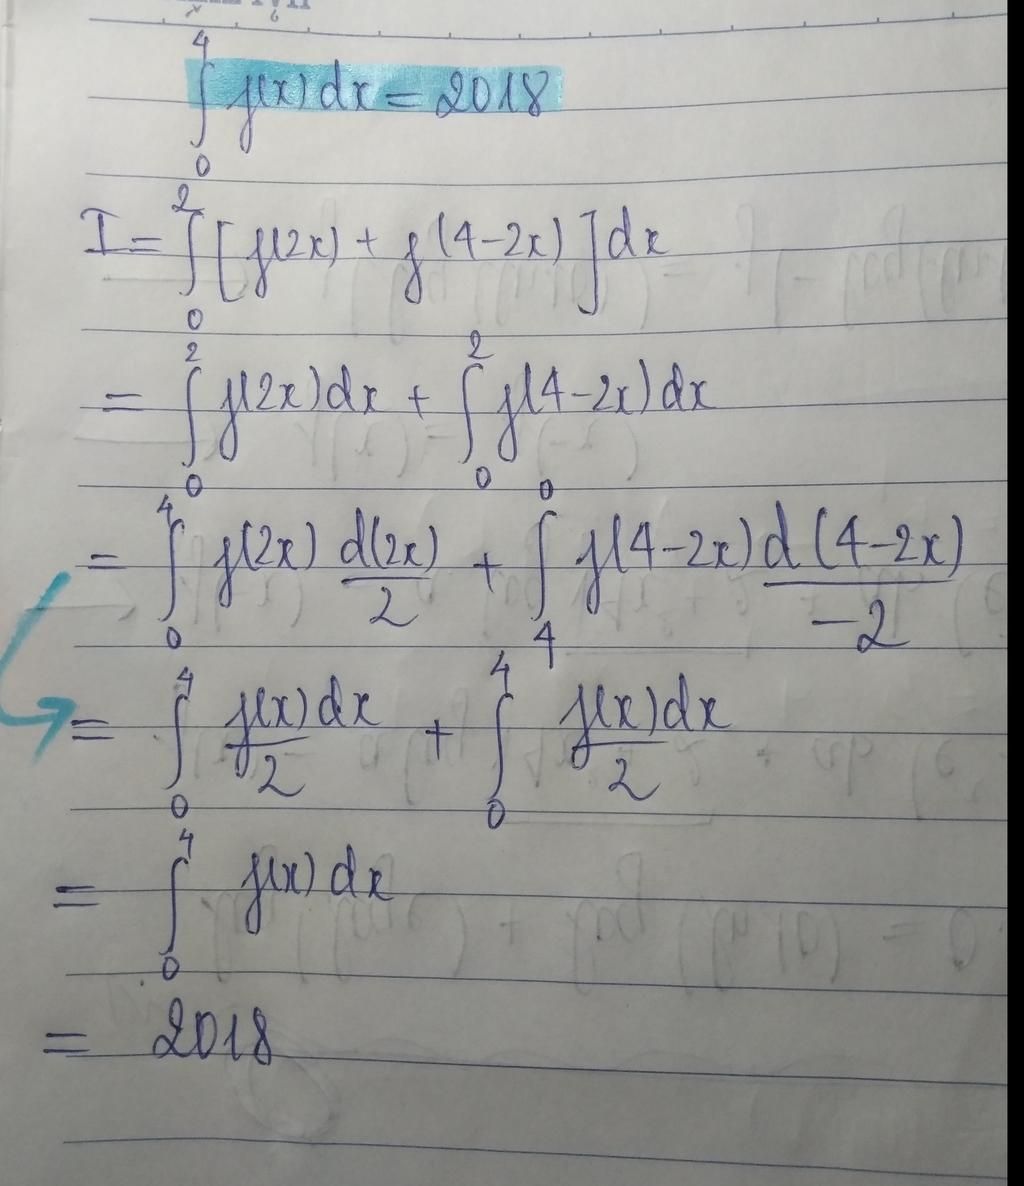 ∫₀⁴ f(x) dx = 2018
I = ∫₀² [f(2x) + f(4-2x)] dx
= ∫₀² f(2x) dx + ∫₀² f(4-2x) dx
= ∫₀⁴ f(2x) d(2x)/2 + ∫₄⁰ f(4-2x) d(4-2x)/-2
= ∫₀⁴ f(x)/2 dx + ∫₀⁴ f(x)/2 dx
= ∫₀⁴ f(x) dx
= 2018